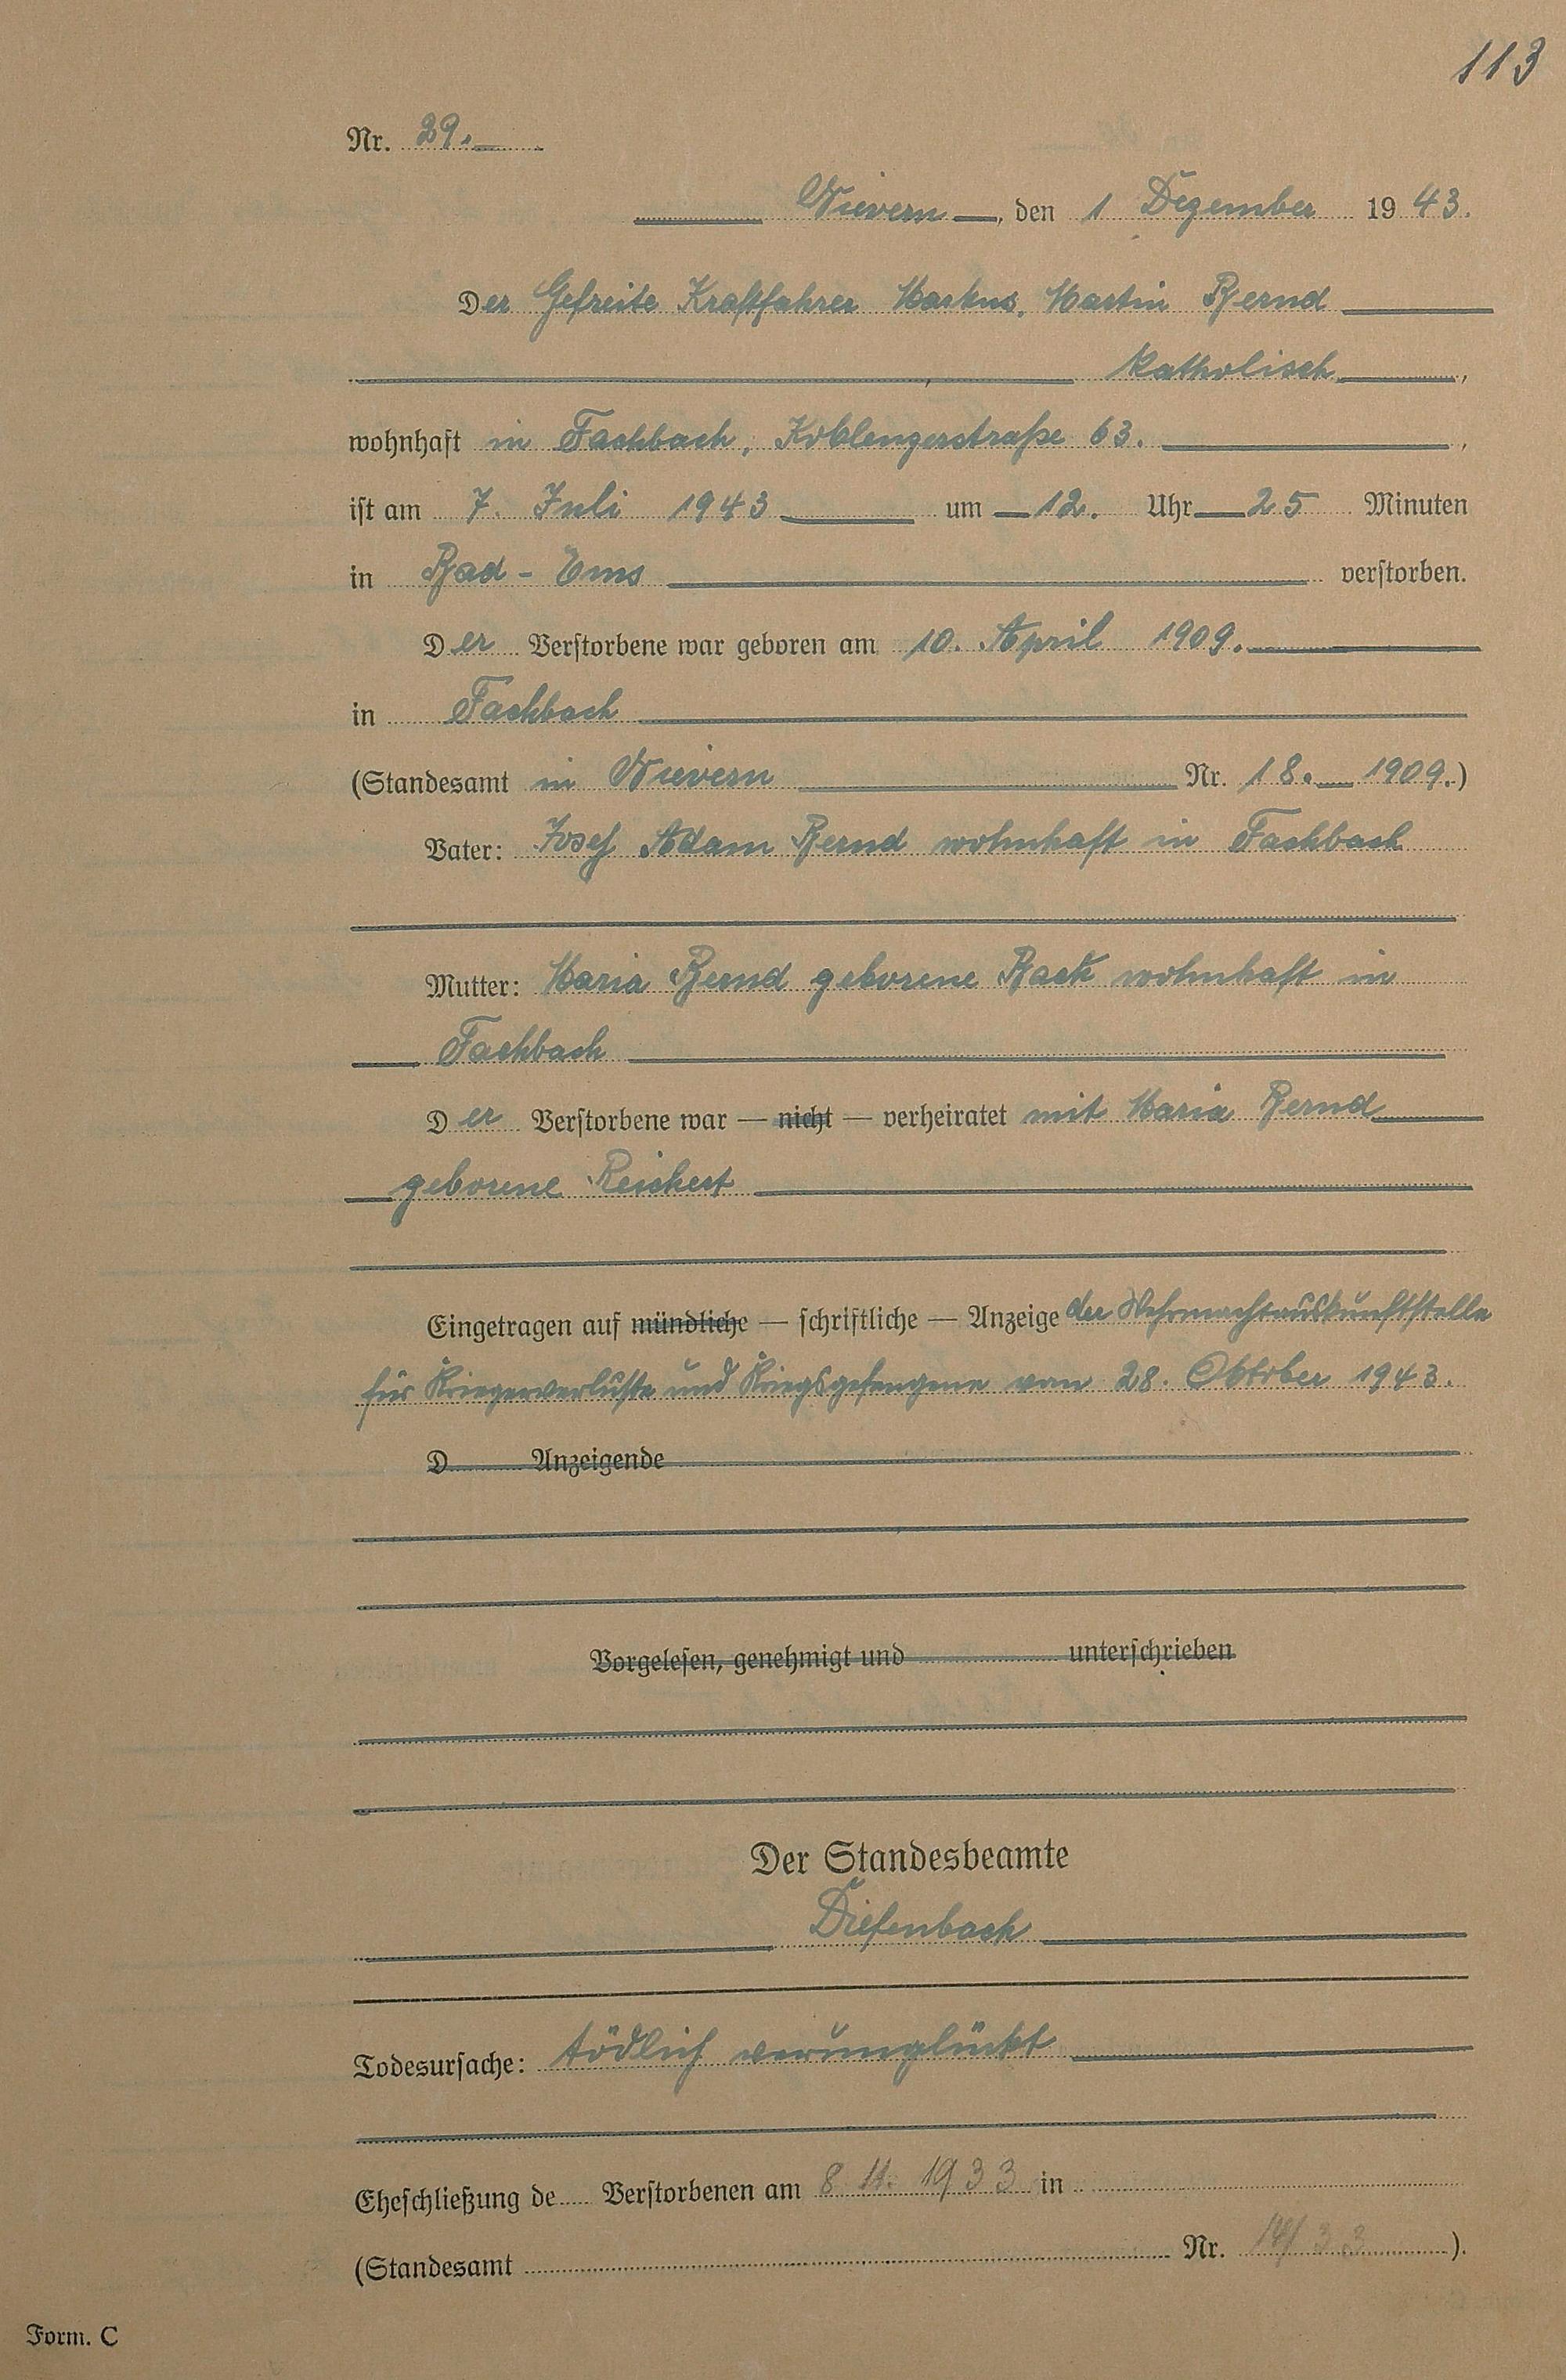 113
Nr. 29.
Nievern, den 1 Dezember 1943.
Der Gefreite Kraftfahrer Markus, Martin Bernd
katholisch,
wohnhaft in Fachbach, Koblenzerstraße 63.,
ist am 7. Juli 1943 um 12. Uhr 25 Minuten
in Bad-Ems verstorben.
Der Verstorbene war geboren am 10. April 1909.
in Fachbach
(Standesamt in Nievern Nr. 18. 1909.)
Vater: Josef Adam Bernd wohnhaft in Fachbach
Mutter: Maria Bernd geborene Back wohnhaft in
Fachbach
Der Verstorbene war — nicht — verheiratet mit Maria Bernd
geborene Reichert
Eingetragen auf mündliche — schriftliche — Anzeige der Wehrmachtauskunftstelle
für Kriegerverluste und Kriegsgefangene vom 28. Oktober 1943.
D Anzeigende
Vorgelesen, genehmigt und unterschrieben
Der Standesbeamte
Diefenbach
Todesursache: tödlich verunglückt
Eheschließung de Verstorbenen am 8 11. 1933 in
(Standesamt Nr. /33).
Form. C